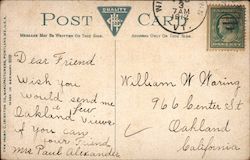 QUALITY
POST CARD
MESSAGE MAY BE WRITTEN ON THIS SIDE.
ADDRESS ONLY ON THIS SIDE.
7 AM
Dear Friend
Wish you
would send me
a few
Oakland views
if you can
your Friend
Mrs Paul Alexander
William W Waring
966 Center St
Oakland
California